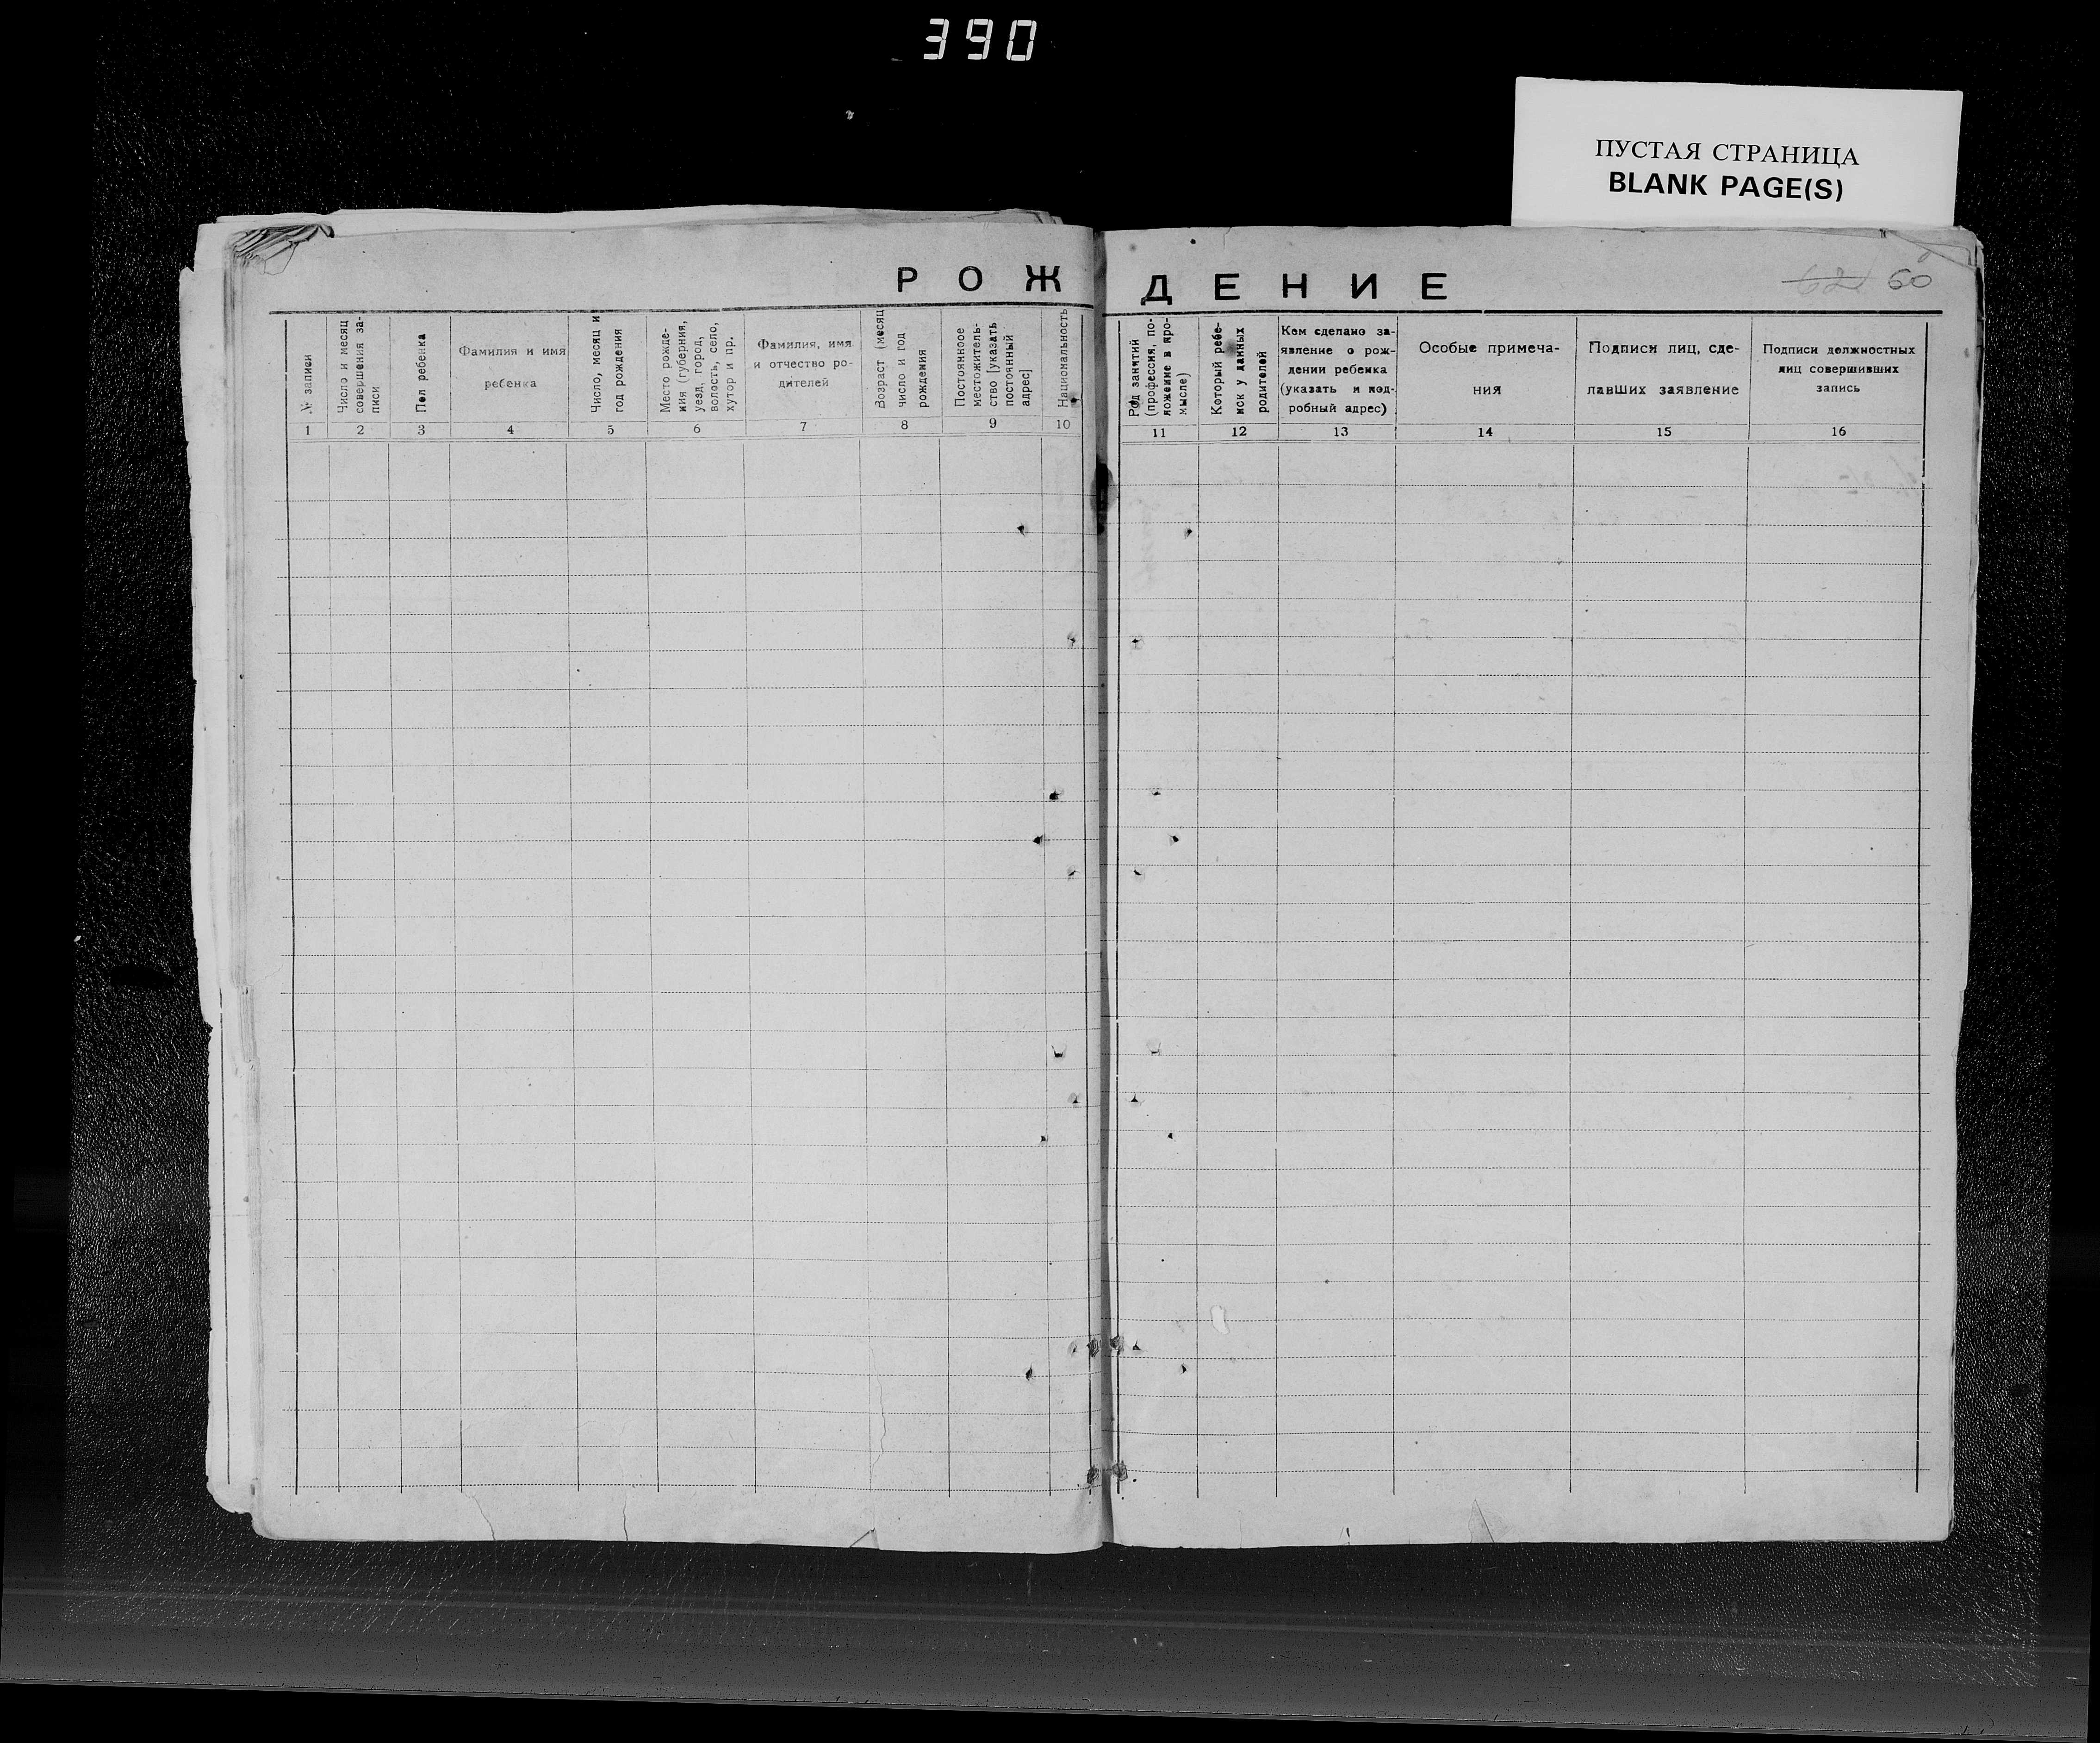 390
ПУСТАЯ СТРАНИЦА
BLANK PAGE(S)
РОЖДЕНИЕ
62 60
№ записи
Число и месяц
совершения за-
писи
Пол ребенка
Фамилия и имя
ребенка
Число, месяц и
год рождения
Место рожде-
ния (губерния,
уезд, город,
волость, село,
хутор и пр.
Фамилия, имя
и отчество ро-
дителей
Возраст (месяц
число и год
рождения
Постоянное
местожитель-
ство [указать
постоянный
адрес]
Национальность
Род занятий
(профессия, по-
ложение в про-
мысле)
Который ребе-
нок у данных
родителей
Кем сделано за-
явление о рож-
дении ребенка
(указать и под-
робный адрес)
Особые примеча-
ния
Подписи лиц, сде-
лавших заявление
Подписи должностных
лиц совершивших
запись
1 2 3 4 5 6 7 8 9 10 11 12 13 14 15 16